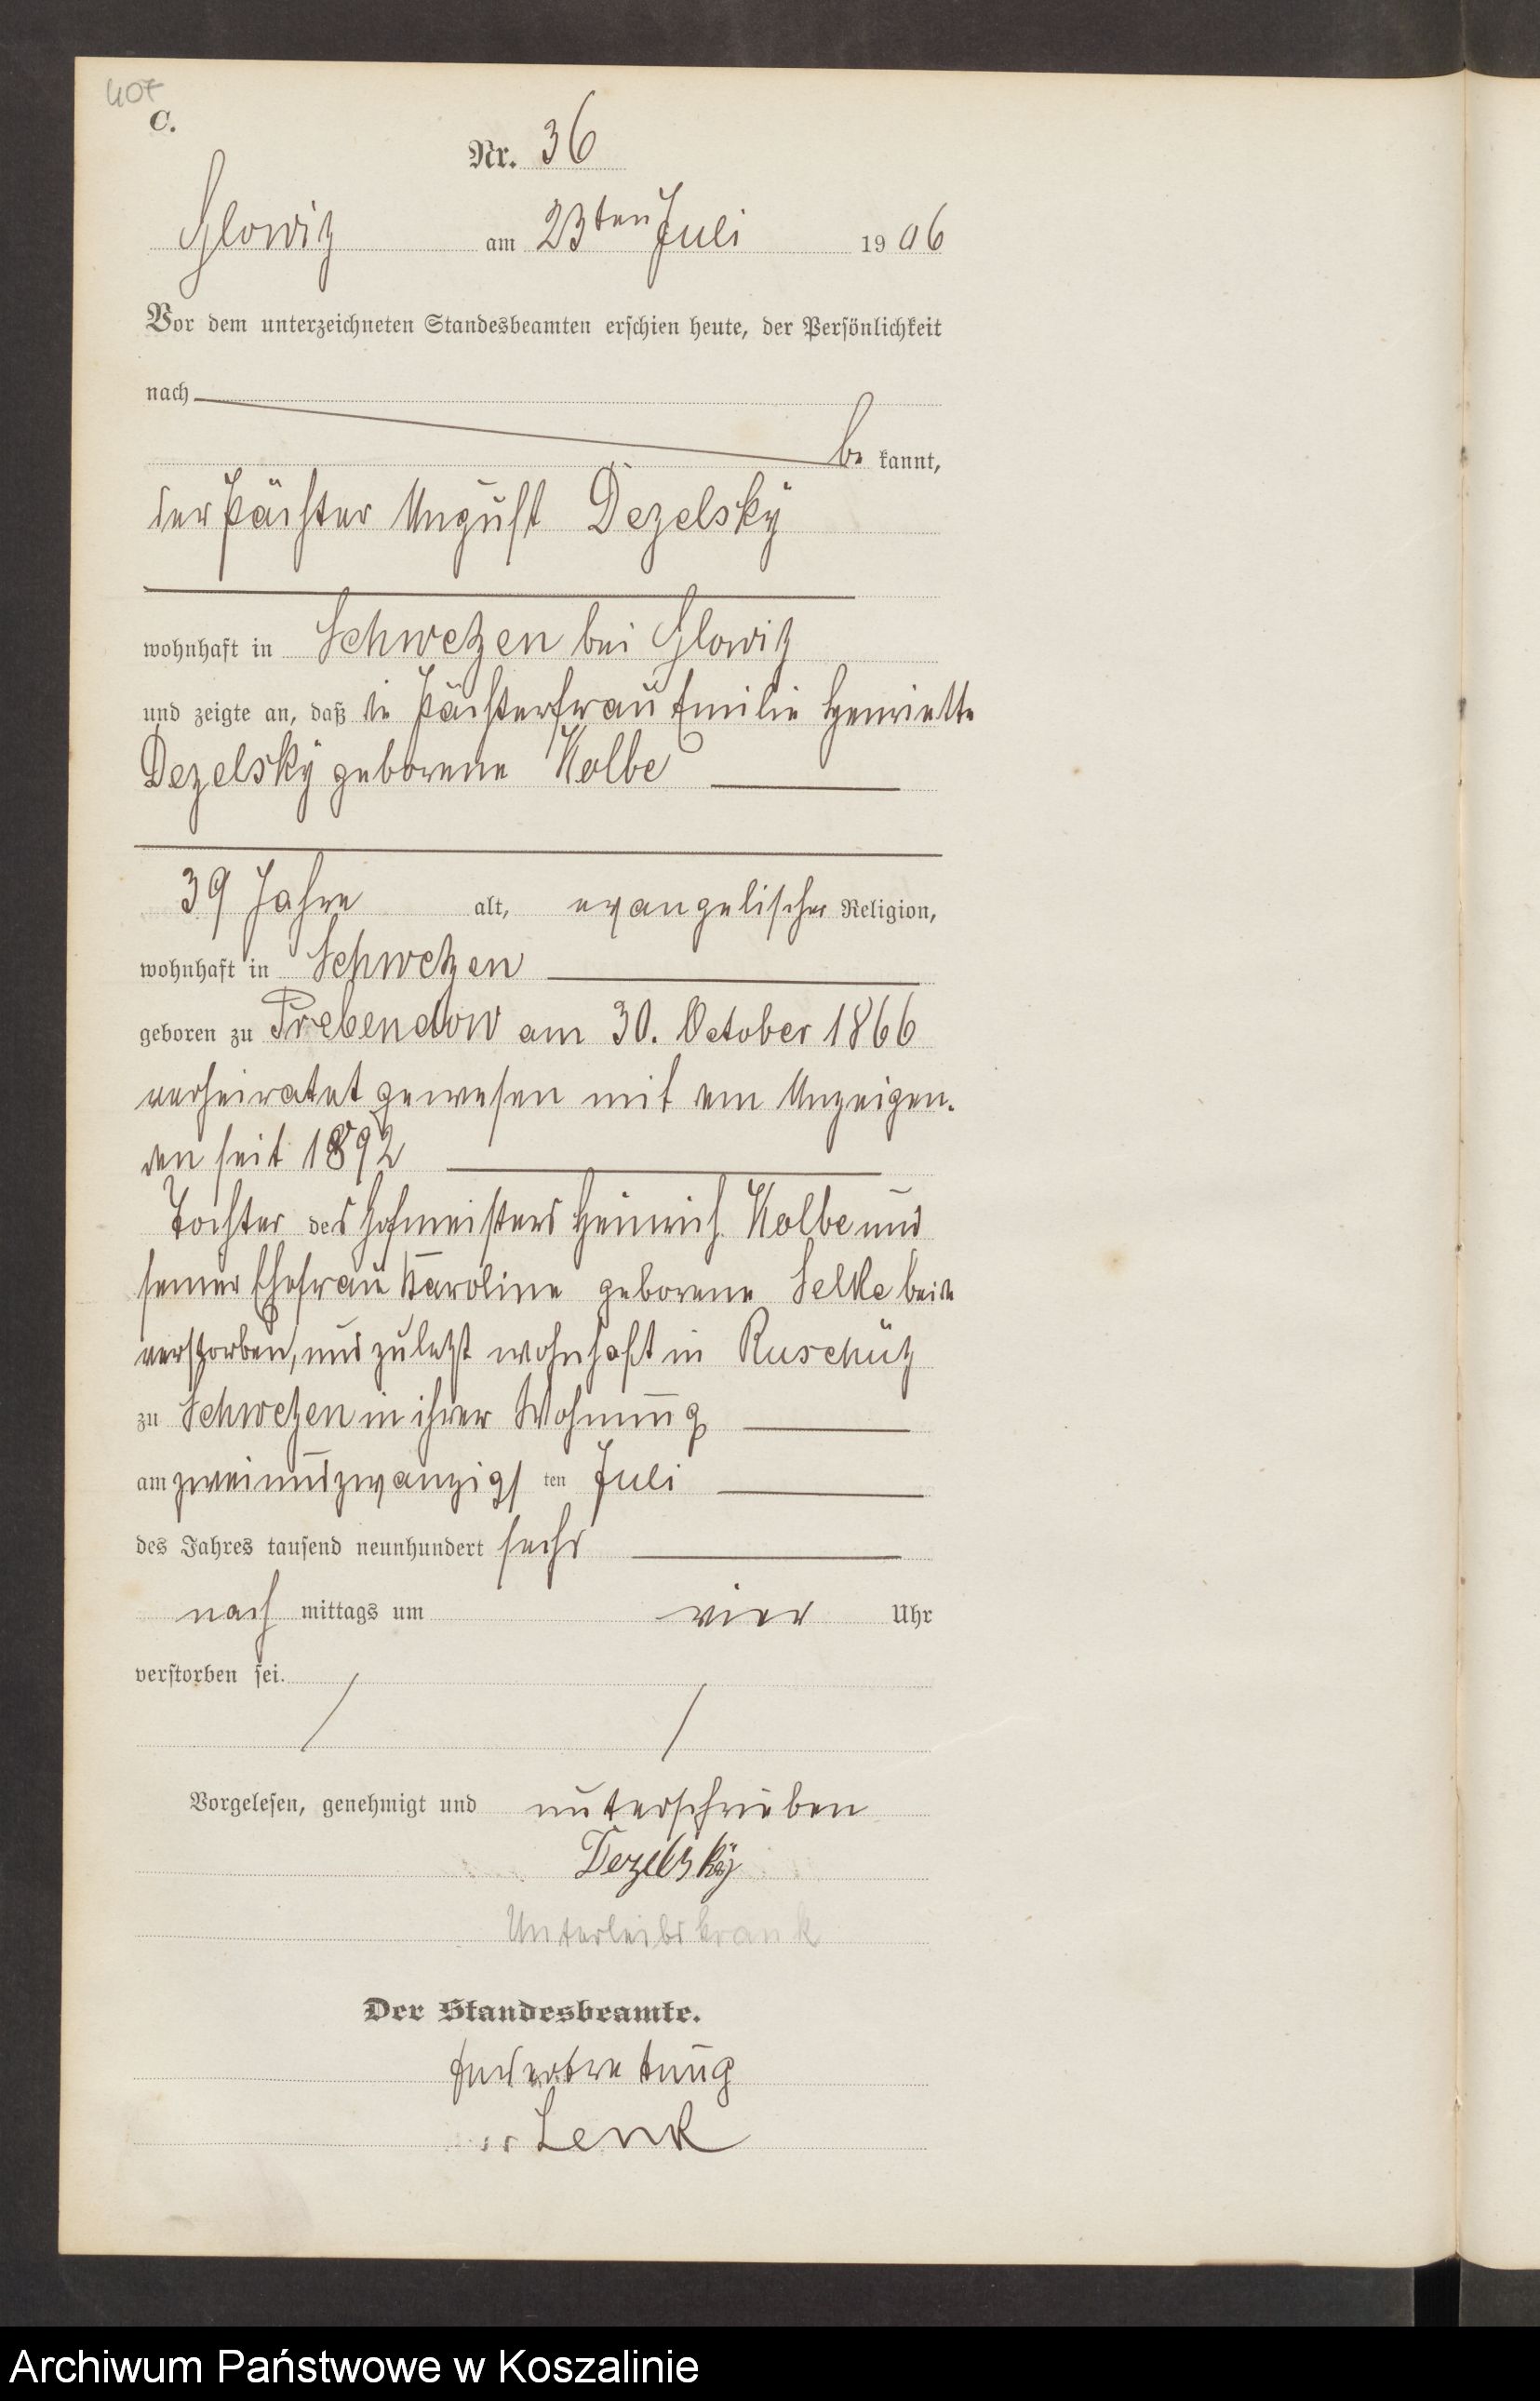 407
C.
Nr. 36
Glowitz am 23ten Juli 1906
Vor dem unterzeichneten Standesbeamten erschien heute, der Persönlichkeit
nach
be kannt,
der Pächter August Dezelsky
wohnhaft in Schwetzen bei Glowitz
und zeigte an, daß die Pächterfrau Emilie Henriette
Dezelsky geborene Kolbe
39 Jahre alt, evangelischer Religion,
wohnhaft in Schwetzen
geboren zu Prebendow am 30. October 1866
verheiratet gewesen mit dem Anzeigen-
den seit 1892
Tochter des Hofmeisters Heinrich Kolbe und
seiner Ehefrau Karoline geborene Selke beide
verstorben, und zuletzt wohnhaft in Ruschütz
zu Schwetzen in ihrer Wohnung
am zweiundzwanzigsten Juli
des Jahres tausend neunhundert sechs
nach mittags um vier Uhr
verstorben sei.
Vorgelesen, genehmigt und unterschrieben
Dezelsky
Unterleibskrank
Der Standesbeamte.
In Vertretung
Lenk
Archiwum Państwowe w Koszalinie